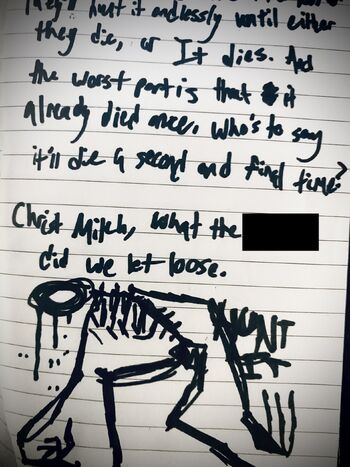 They'll hunt it endlessly until either
they die, or It dies. And
the worst part is that it
already died once. Who's to say
it'll die a second and final time?
Christ Mitch, what the
did we let loose.
HUNT
IT